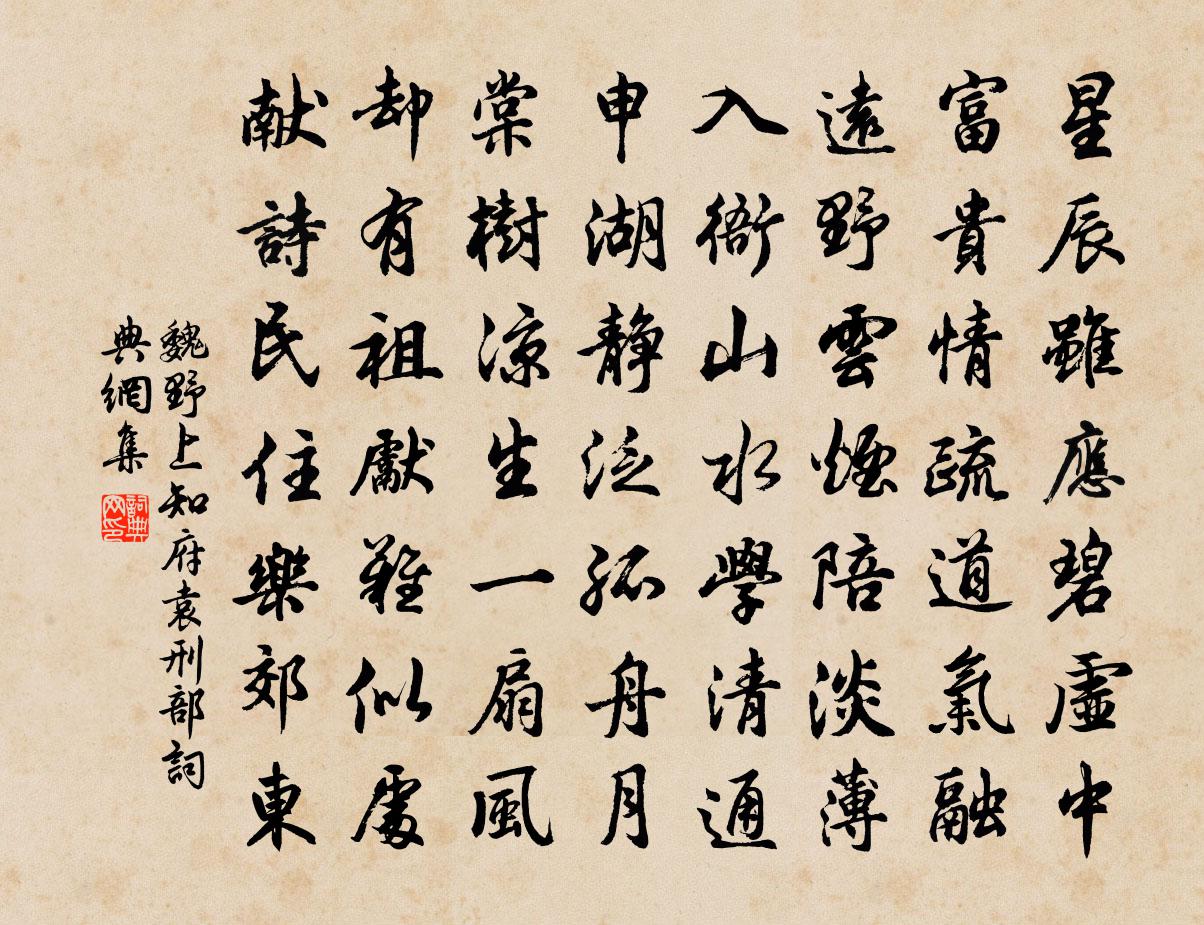 星辰雖應碧虛中
富貴情疏道氣融
遠野雲煙陪淡薄
入衙山水學清通
申湖靜泛孤舟月
棠樹涼生一扇風
却有祖獻難似處
献詩民住樂郊東
魏野上知府袁刑部詞
典網集
詞典
网印